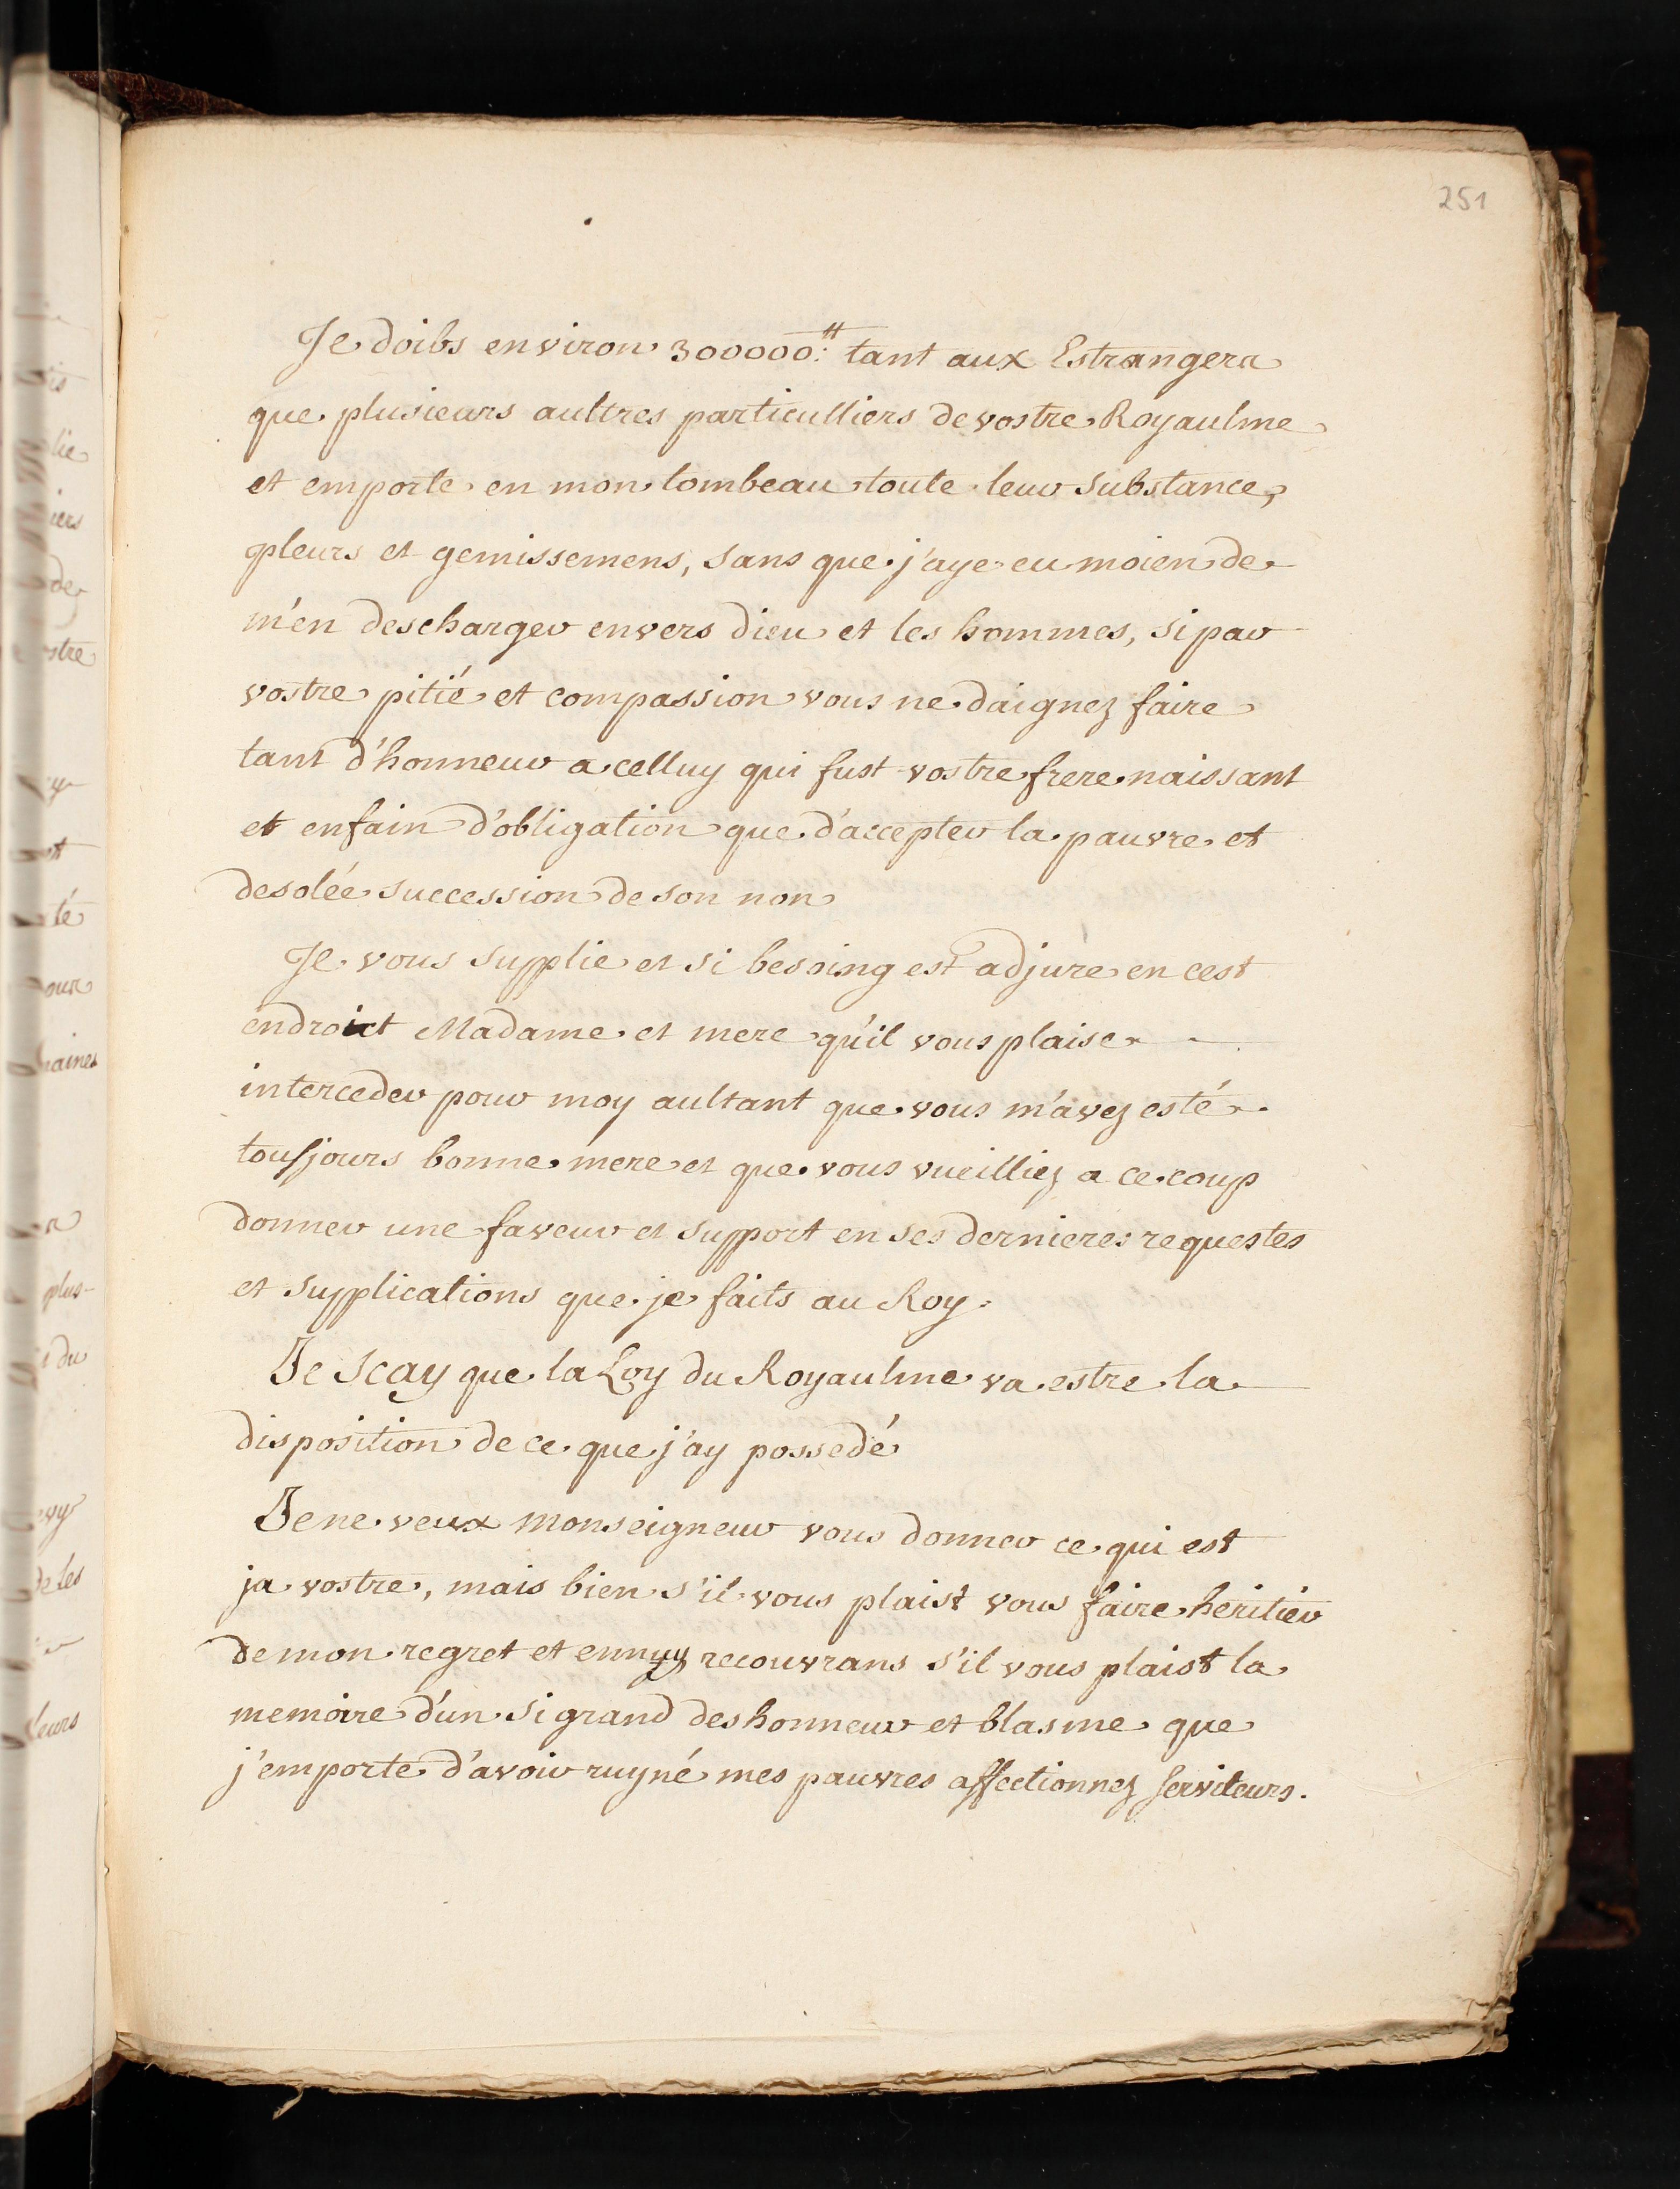 251
Je doibs environ 300000:₶ tant aux Estrangers
que plusieurs aultres particulliers de vostre Royaulme
et emporte en mon tombeau toute leur substance,
pleurs et gemissemens, sans que j'aye eu moien de
m'en descharger envers dieu et les hommes, si par
vostre pitié et compassion vous ne daignez faire
tant d'honneur a celluy qui fust vostre frere naissant
et enfain d'obligation que d'accepter la pauvre et
desolée succession de son non
Je vous supplie et si besoing est adjure en cest
endroict Madame et mere qu'il vous plaise
interceder pour moy aultant que vous m'avez esté
tousjours bonne mere et que vous vueilliez a ce coup
donner une faveur et support en ses dernieres requestes
et supplications que je faits au Roy.
Je scay que la Loy du Royaulme va estre la
disposition de ce que j'ay possedé
Je ne veux monseigneur vous donner ce qui est
ja vostre, mais bien s'il vous plaist vous faire heritier
de mon regret et ennuy recouvrans s'il vous plaist la
memoire d'un si grand deshonneur et blasme que
j'emporte d'avoir ruyné mes pauvres affectionnez serviteurs.